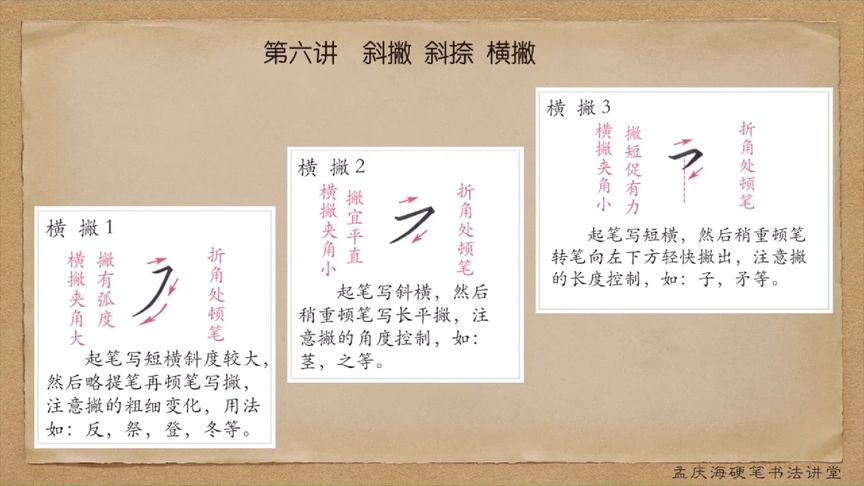 第六讲 斜撇 斜捺 横撇
横 撇 1
横撇夹角大
撇有弧度
折角处顿笔
起笔写短横斜度较大，
然后略提笔再顿笔写撇，
注意撇的粗细变化，用法
如：反，祭，登，冬等。
横 撇 2
横撇夹角小
撇宜平直
折角处顿笔
起笔写斜横，然后
稍重顿笔写长平撇，注
意撇的角度控制，如：
茎，之等。
横 撇 3
横撇夹角小
撇短促有力
折角处顿笔
起笔写短横，然后稍重顿笔
转笔向左下方轻快撇出，注意撇
的长度控制，如：子，矛等。
孟庆海硬笔书法讲堂